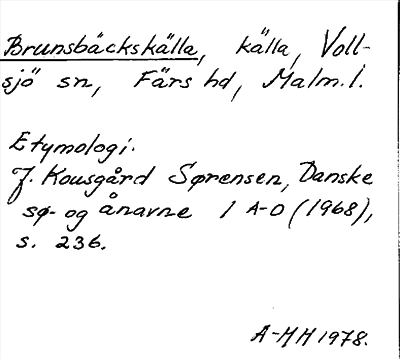 Brunsbäckskälla, källa, Voll-
sjö sn, Färs hd, Malm. l.
Etymologi.
J. Kousgård Sørensen, Danske
sø- og ånavne 1 A-D (1968),
s. 236.
A-HH 1978.